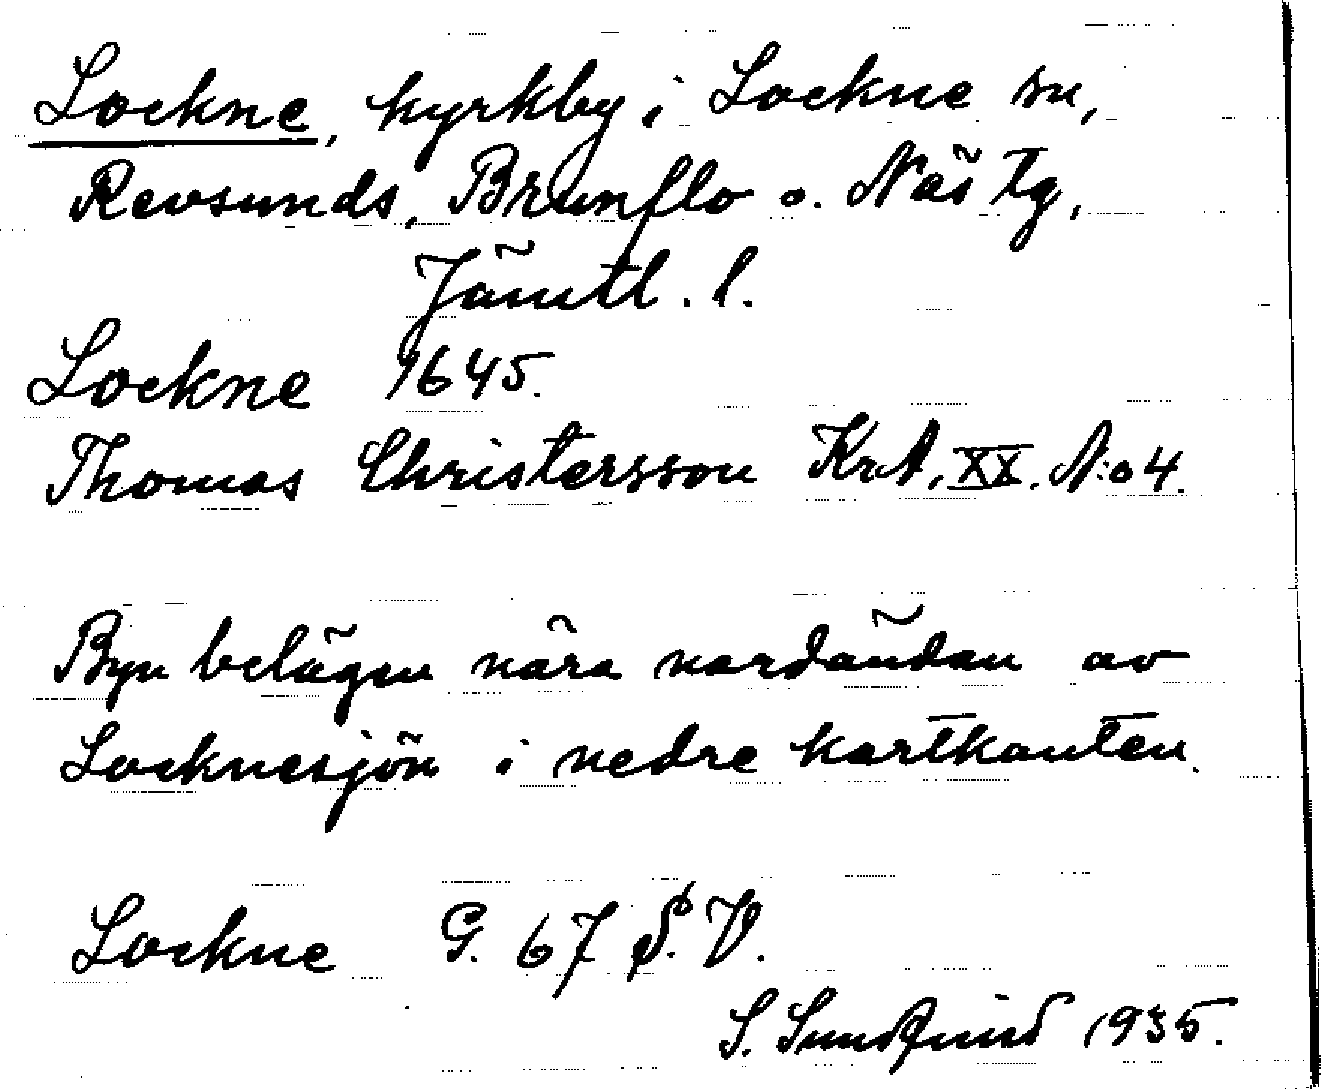 Lockne, kyrkby i Lockne sn,
Revsunds, Brunflo o. Näs tg,
Jämtl. l.
Lockne 1645.
Thomas Christersson Kr. A. XX. N:o 4.
Byn belägen nära nordändan av
Locknesjön i nedre kartkanten.
Lockne G. 67 S. V.
S. Sundquist 1935.